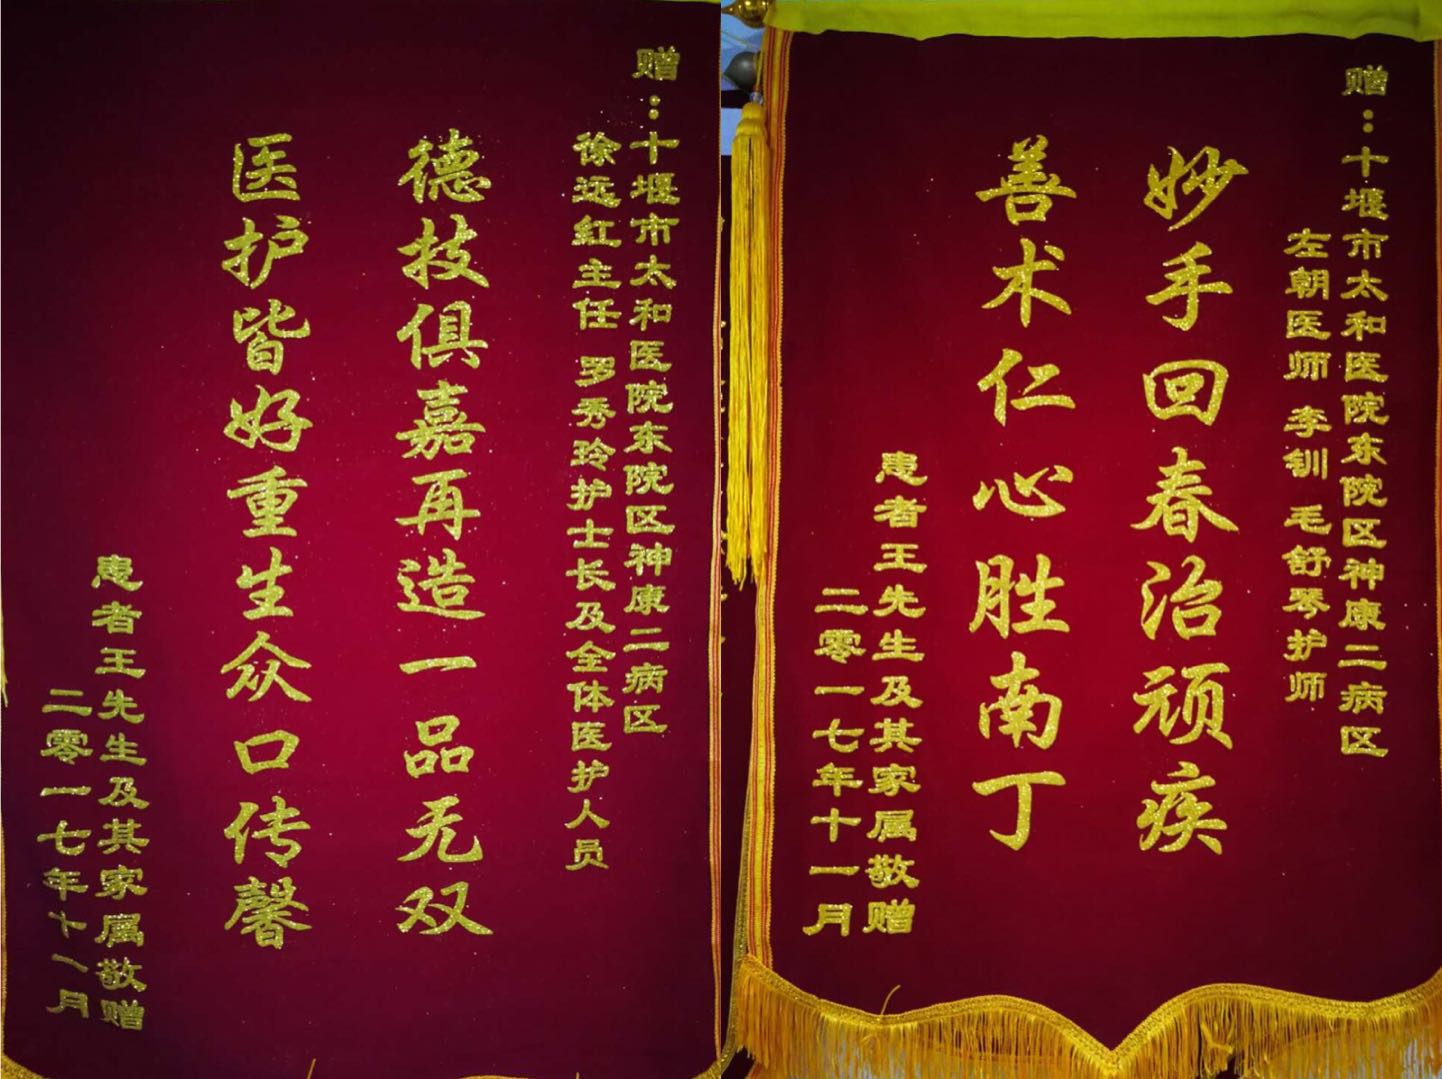 赠：十堰市太和医院东院区神康二病区
徐远红主任 罗秀玲护士长及全体医护人员
德技俱嘉再造一品无双
医护皆好重生众口传馨
患者王先生及其家属敬赠
二零一七年十一月
赠：十堰市太和医院东院区神康二病区
左朝医师 李钏 毛舒琴护师
妙手回春治顽疾
善术仁心胜南丁
患者王先生及其家属敬赠
二零一七年十一月